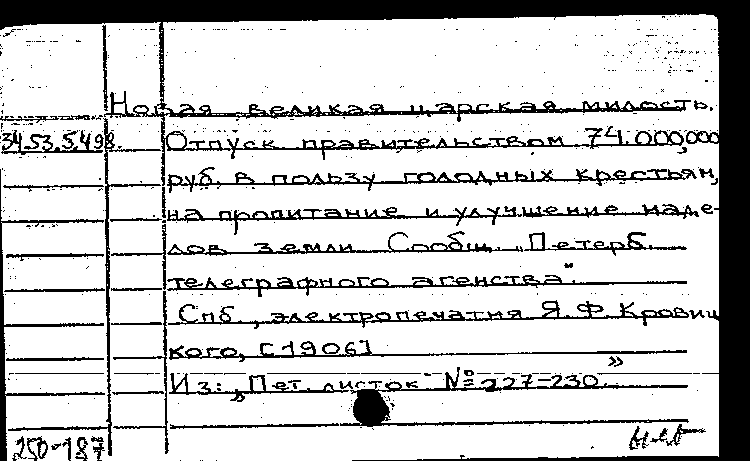 Новая великая царская милость.
34.53.5.498. Отпуск правительством 74.000,000
руб. в пользу голодных крестьян,
на пропитание и улучшение наде-
лов земли Сообщ. „Петерб.
телеграфного агенства".
Спб, электропечатня Я.Ф Кровиц
кого, [1906]
Из: „Пет. листок" № 227-230.
250-187